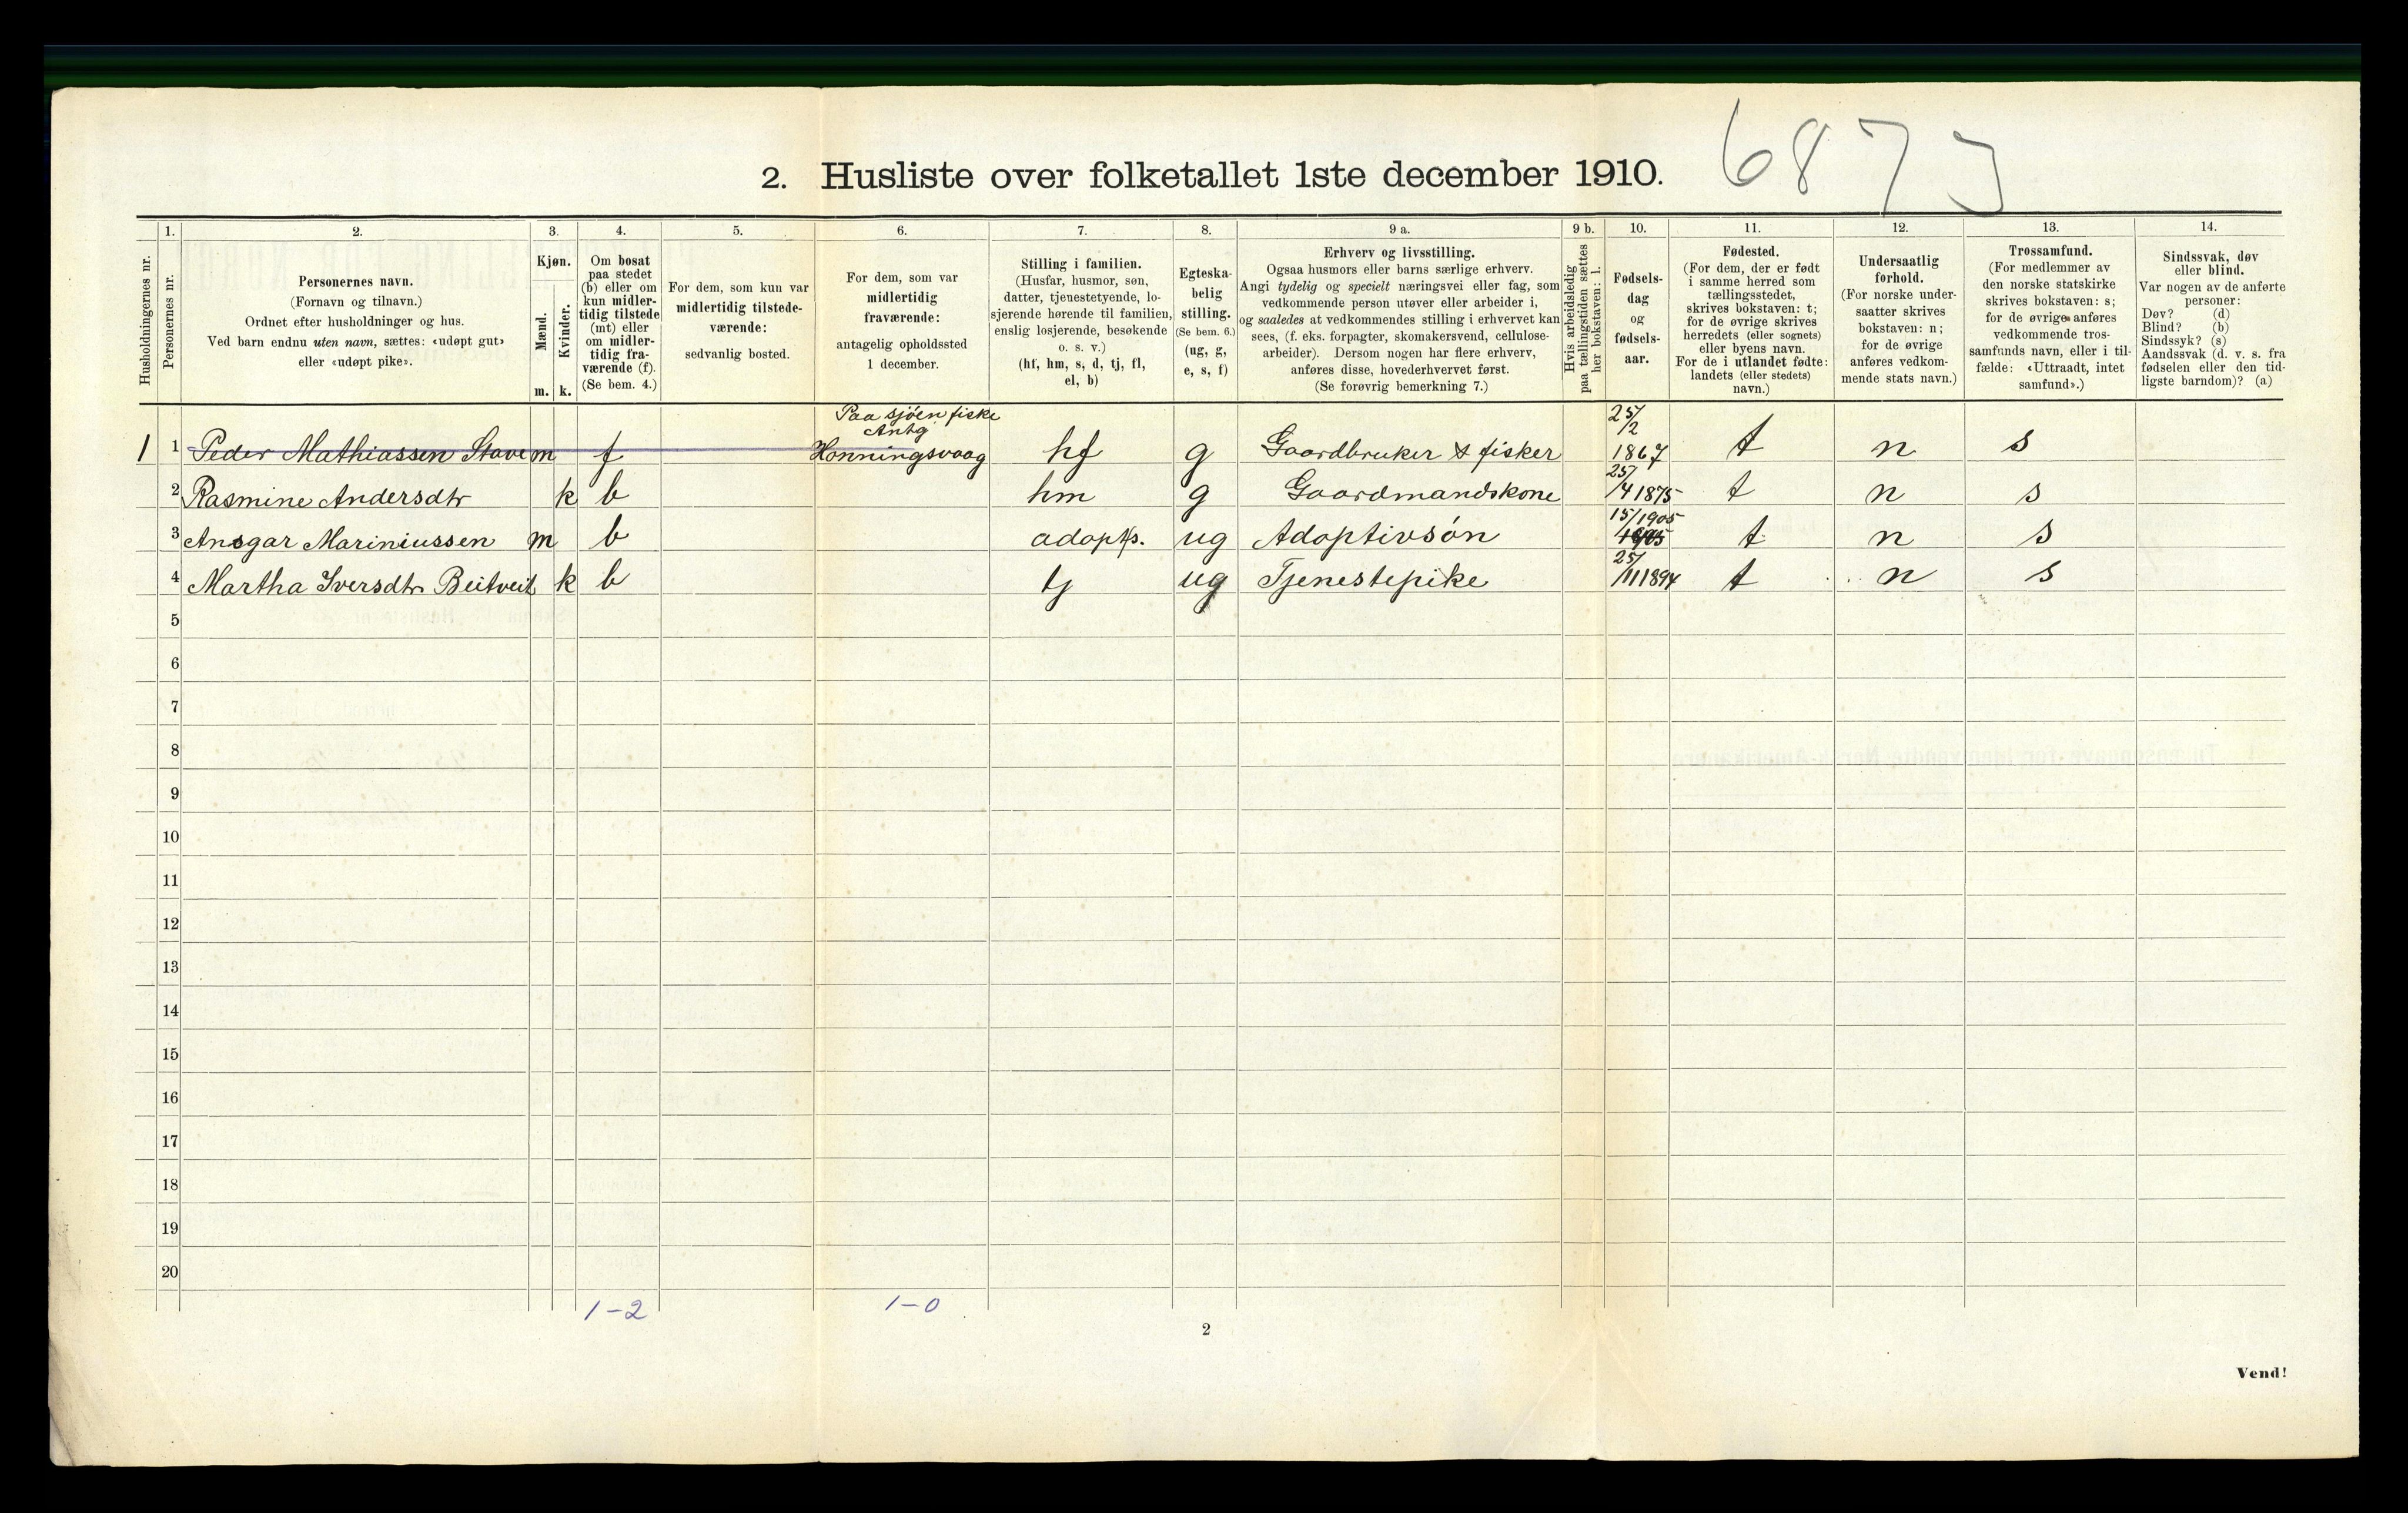 6873
2. Husliste over folketallet 1ste december 1910.
Husholdningernes nr.
1.
Personernes nr.
2.
Personernes navn.
(Fornavn og tilnavn.)
Ordnet efter husholdninger og hus.
Ved barn endnu uten navn, sættes: «udøpt gut»
eller «udøpt pike».
3.
Kjøn.
Mænd.
Kvinder.
m. k.
4.
Om bosat
paa stedet
(b) eller om
kun midler-
tidig tilstede
(mt) eller
om midler-
tidig fra-
værende (f).
(Se bem. 4.)
5.
For dem, som kun var
midlertidig tilstede-
værende:
sedvanlig bosted.
6.
For dem, som var
midlertidig
fraværende:
antagelig opholdssted
1 december.
7.
Stilling i familien.
(Husfar, husmor, søn,
datter, tjenestetyende, lo-
sjerende hørende til familien,
enslig losjerende, besøkende
o. s. v.)
(hf, hm, s, d, tj, fl,
el, b)
8.
Egteska-
belig
stilling.
(Se bem. 6.)
(ug, g,
e, s, f)
9 a.
Erhverv og livsstilling.
Ogsaa husmors eller barns særlige erhverv.
Angi tydelig og specielt næringsvei eller fag, som
vedkommende person utøver eller arbeider i,
og saaledes at vedkommendes stilling i erhvervet kan
sees, (f. eks. forpagter, skomakersvend, cellulose-
arbeider). Dersom nogen har flere erhverv,
anføres disse, hovederhvervet først.
(Se forøvrig bemerkning 7.)
9 b.
Hvis arbeidsledig
paa tællingstiden sættes
her bokstaven: l.
10.
Fødsels-
dag
og
fødsels-
aar.
11.
Fødested.
(For dem, der er født
i samme herred som
tællingsstedet,
skrives bokstaven: t;
for de øvrige skrives
herredets (eller sognets)
eller byens navn.
For de i utlandet fødte:
landets (eller stedets)
navn.)
12.
Undersaatlig
forhold.
(For norske under-
saatter skrives
bokstaven: n;
for de øvrige
anføres vedkom-
mende stats navn.)
13.
Trossamfund.
(For medlemmer av
den norske statskirke
skrives bokstaven: s;
for de øvrige anføres
vedkommende tros-
samfunds navn, eller i til-
fælde: «Uttraadt, intet
samfund».)
14.
Sindssvak, døv
eller blind.
Var nogen av de anførte
personer:
Døv? (d)
Blind? (b)
Sindssyk? (s)
Aandssvak (d. v. s. fra
fødselen eller den tid-
ligste barndom)? (a)
Paa sjöen fiske
Antg
1 1 Peder Mathiassen Stave m f Honningsvaag hf g Gaardbruker & fisker 25/2 1867 t n s
2 Rasmine Andersdtr k b hm g Gaardmandskone 25/4 1875 t n s
3 Ansgar Mariniussen m b adopt s. ug Adoptivsön 15/1905 t n s
4 Martha Iversdtr Beitveit k b tj ug Tjenestepike 25/11 1894 t n s
5
6
7
8
9
10
11
12
13
14
15
16
17
18
19
20
1-2 1-0
2
Vend!